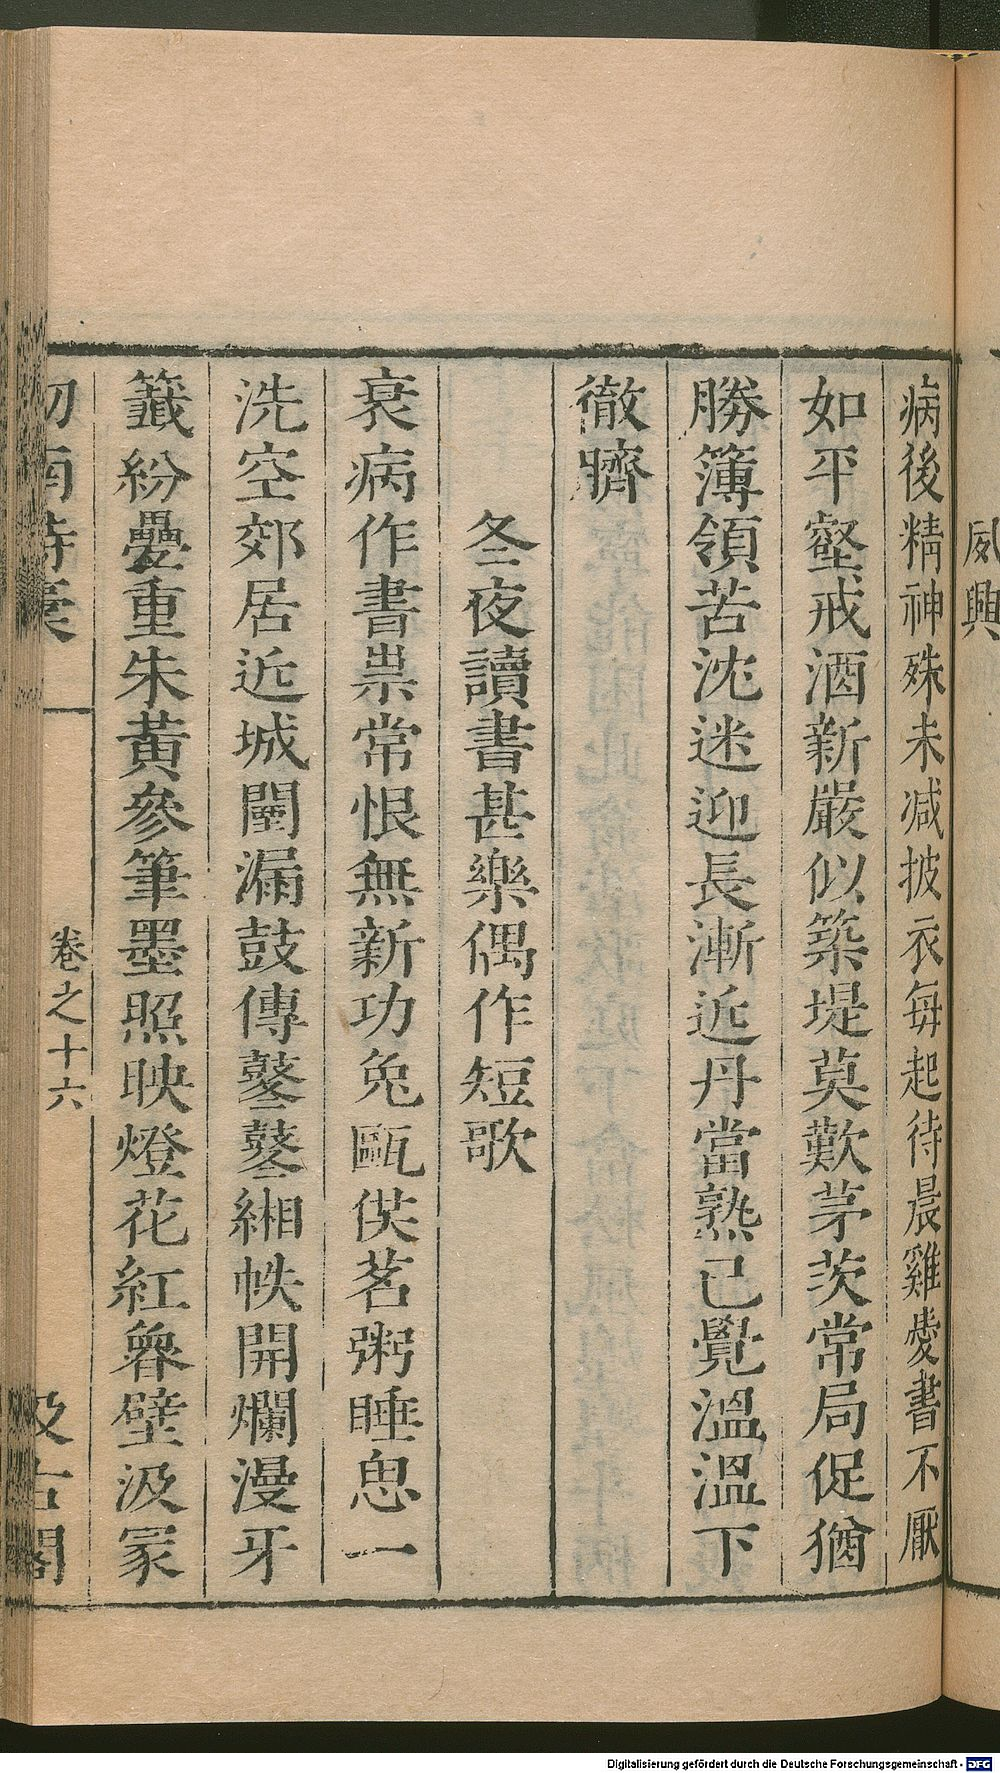 感興
病後精神殊未减披衣每起待晨雞愛書不厭
如平壑戒酒新嚴似築堤莫歎茅茨常局促猶
勝簿領苦沈迷迎長漸近丹當熟已覺溫溫下
徹臍
冬夜讀書甚樂偶作短歌
衰病作書祟常恨無新功兔甌供茗粥睡思一
洗空郊居近城闉漏鼓傳鼕鼕緗帙開爛漫牙
籤紛疊重朱黃參筆墨照映燈花紅魯壁汲冢
劍南詩稾
卷之十六
汲古閣
Digitalisierung gefördert durch die Deutsche Forschungsgemeinschaft - DFG